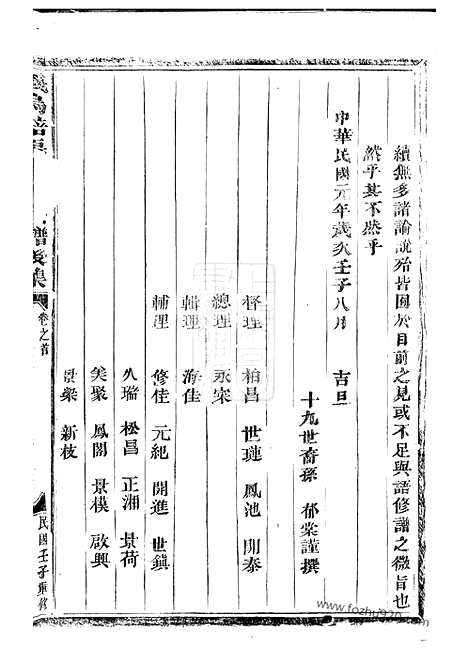 續無多諸論說殆皆囿於目前之見或不足與語修譜之微旨也
然乎其不然乎
中華民國元年歲次壬子八月 吉旦
十九世裔孫 郁棠謹撰
督理 柏昌 世璉 鳳池 開泰
總理 永宋
輯理 海佳
輔理 修佳 元紀 開進 世鎮
久瑞 松昌 正湘 景荷
美聚 鳳閣 景模 啟興
景燊 新枝
卷之首
民國壬子重修
www.fozhu920.com